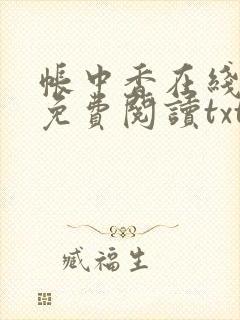 帳中香在綫
免費閱讀txt
臧福生